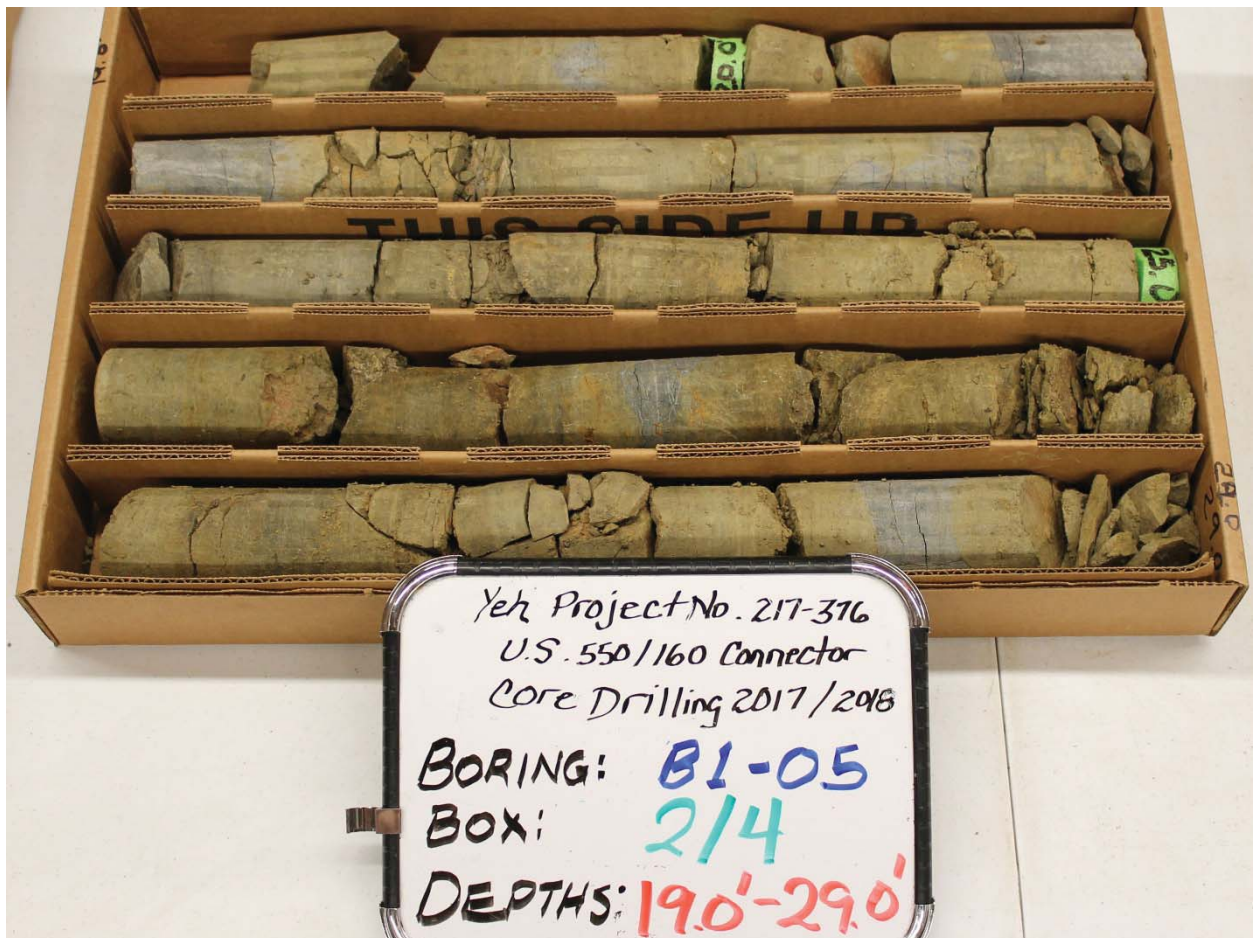 19.0
20.0
THIS SIDE UP
25.0
29.0
Yeh Project No. 217-376
U.S. 550/160 Connector
Core Drilling 2017/2018
BORING: B1-05
BOX: 2/4
DEPTHS: 19.0'-29.0'